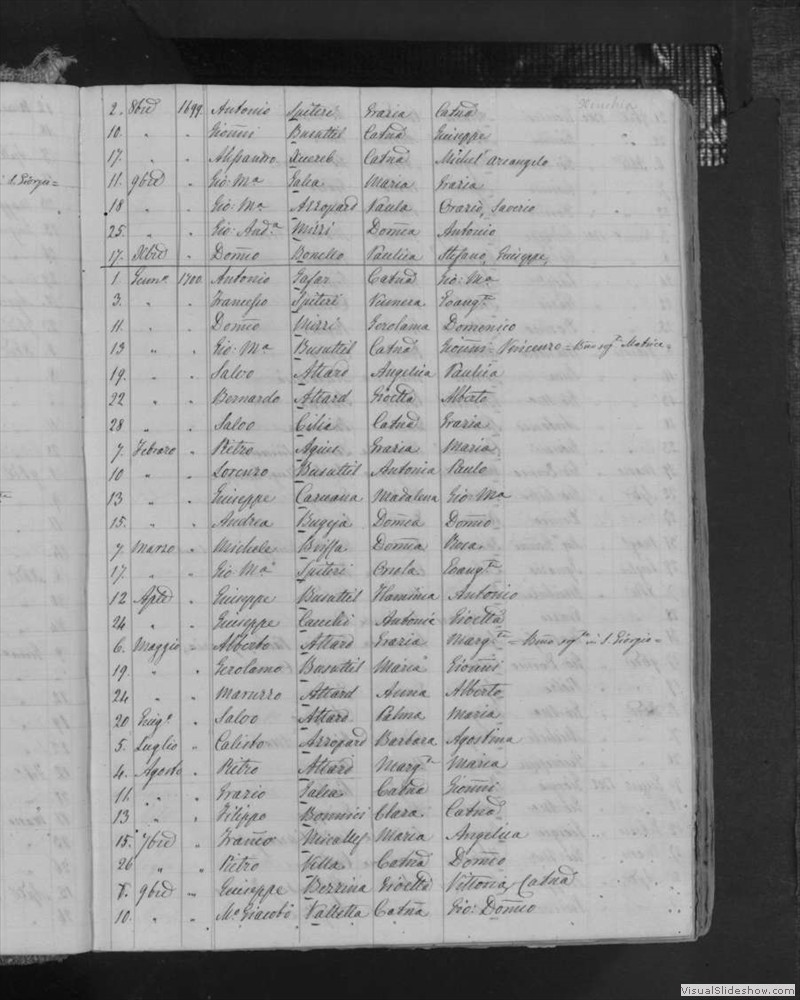 2. 8bre 1699. Antonio Spiteri Grazia Catna
10. " " Gionni Busuttil Catna Giuseppe
17. " " Alessandro Xuereb Catna Michel' arcangelo
11. 9bre " Gio: Ma Galea Maria Grazia
s. Giorgio =
18 " " Gio: Ma Azzopard Paula Orazio, Saverio
25. " " Gio: Anda Mizzi Domca Antonio
17. Xbre " Domco Bonello Paulica Stefano, Giuseppe,
1 Genno 1700 Antonio Gafar Catna Gio: Ma
3. " " Francesco Spiteri Vennera Evangta
11. " " Domco Mizzi Gerolama Domenico
13 " " Gio: Ma Busuttil Catna Gionni Vincenzo
19. " " Salvo Attard Angelica Paulica
22 " " Bernardo Attard Gioetta Alberto
28 " " Salvo Cilia Catna Grazia
7. Febraro " Pietro Agius Grazia Maria
10 " " Lorenzo Busuttil Antonia Paulo
13 " " Giuseppe Caruana Madalena Gio: Ma
15. " " Andrea Bugeja Domca Domco
7. Marzo " Michele Boffa Domca Rosa
17. " " Gio Ma Spiteri Orsola Evangta
12 Aple " Giuseppe Busuttil Flaminia Antonio
24 " " Giuseppe Antonia Gioetta
6. Maggio " Alberto Attard Grazia Margta S. Giorgio =
19. " " Gerolamo Busuttil Maria Gionni
24 " " Maruzzo Attard Anna Alberto
20 Giugo " Salvo Attard Palma Maria
5. Luglio " Calisto Azzopard Barbara Agostina
4. Agosto " Pietro Attard Margta Maria
11. " " Grazio Galea Catna Gionni
13 " " Filippo Bonnici Clara Catna
15. 7bre " Franco Micallef Maria Angelica
26 " " Pietro Vella Catna Domco
8. 9bre " Giuseppe Berrina Gioetta Vittoria, Catna
10. " " Mo Giacobo Valletta Catna Gio: Domco
VisualSlideshow.com